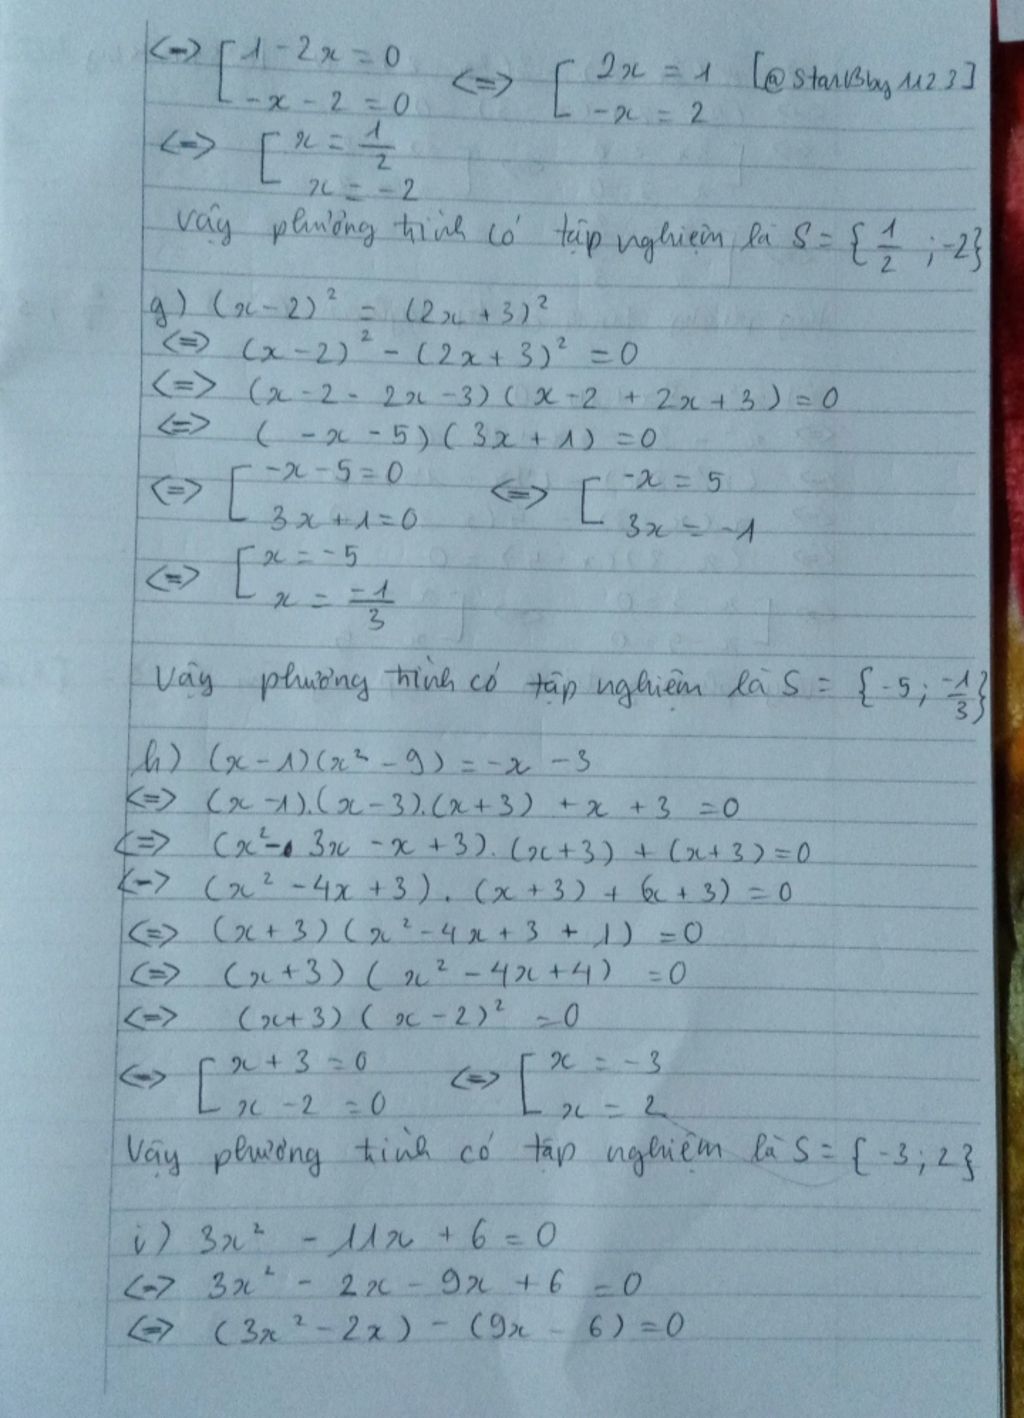 <=> [ 1 - 2x = 0 <=> [ 2x = 1 [@StarBby1123]
-x - 2 = 0 -x = 2
<=> [ x = 1/2
x = -2
Vậy phương trình có tập nghiệm là S = { 1/2 ; -2}
g) (x-2)² = (2x+3)²
<=> (x-2)² - (2x+3)² = 0
<=> (x-2 - 2x-3)(x-2 + 2x+3) = 0
<=> (-x-5)(3x+1) = 0
<=> [ -x-5 = 0 <=> [ -x = 5
3x+1 = 0 3x = -1
<=> [ x = -5
x = -1/3
Vậy phương trình có tập nghiệm là S = {-5; -1/3}
h) (x-1)(x²-9) = -x-3
<=> (x-1).(x-3).(x+3) + x + 3 = 0
<=> (x²- 3x - x + 3).(x+3) + (x+3) = 0
<=> (x² - 4x + 3).(x+3) + (x+3) = 0
<=> (x+3)(x²-4x+3+1) = 0
<=> (x+3)(x²-4x+4) = 0
<=> (x+3)(x-2)² = 0
<=> [ x+3 = 0 <=> [ x = -3
x-2 = 0 x = 2
Vậy phương trình có tập nghiệm là S = {-3; 2}
i) 3x² - 11x + 6 = 0
<=> 3x² - 2x - 9x + 6 = 0
<=> (3x² - 2x) - (9x - 6) = 0